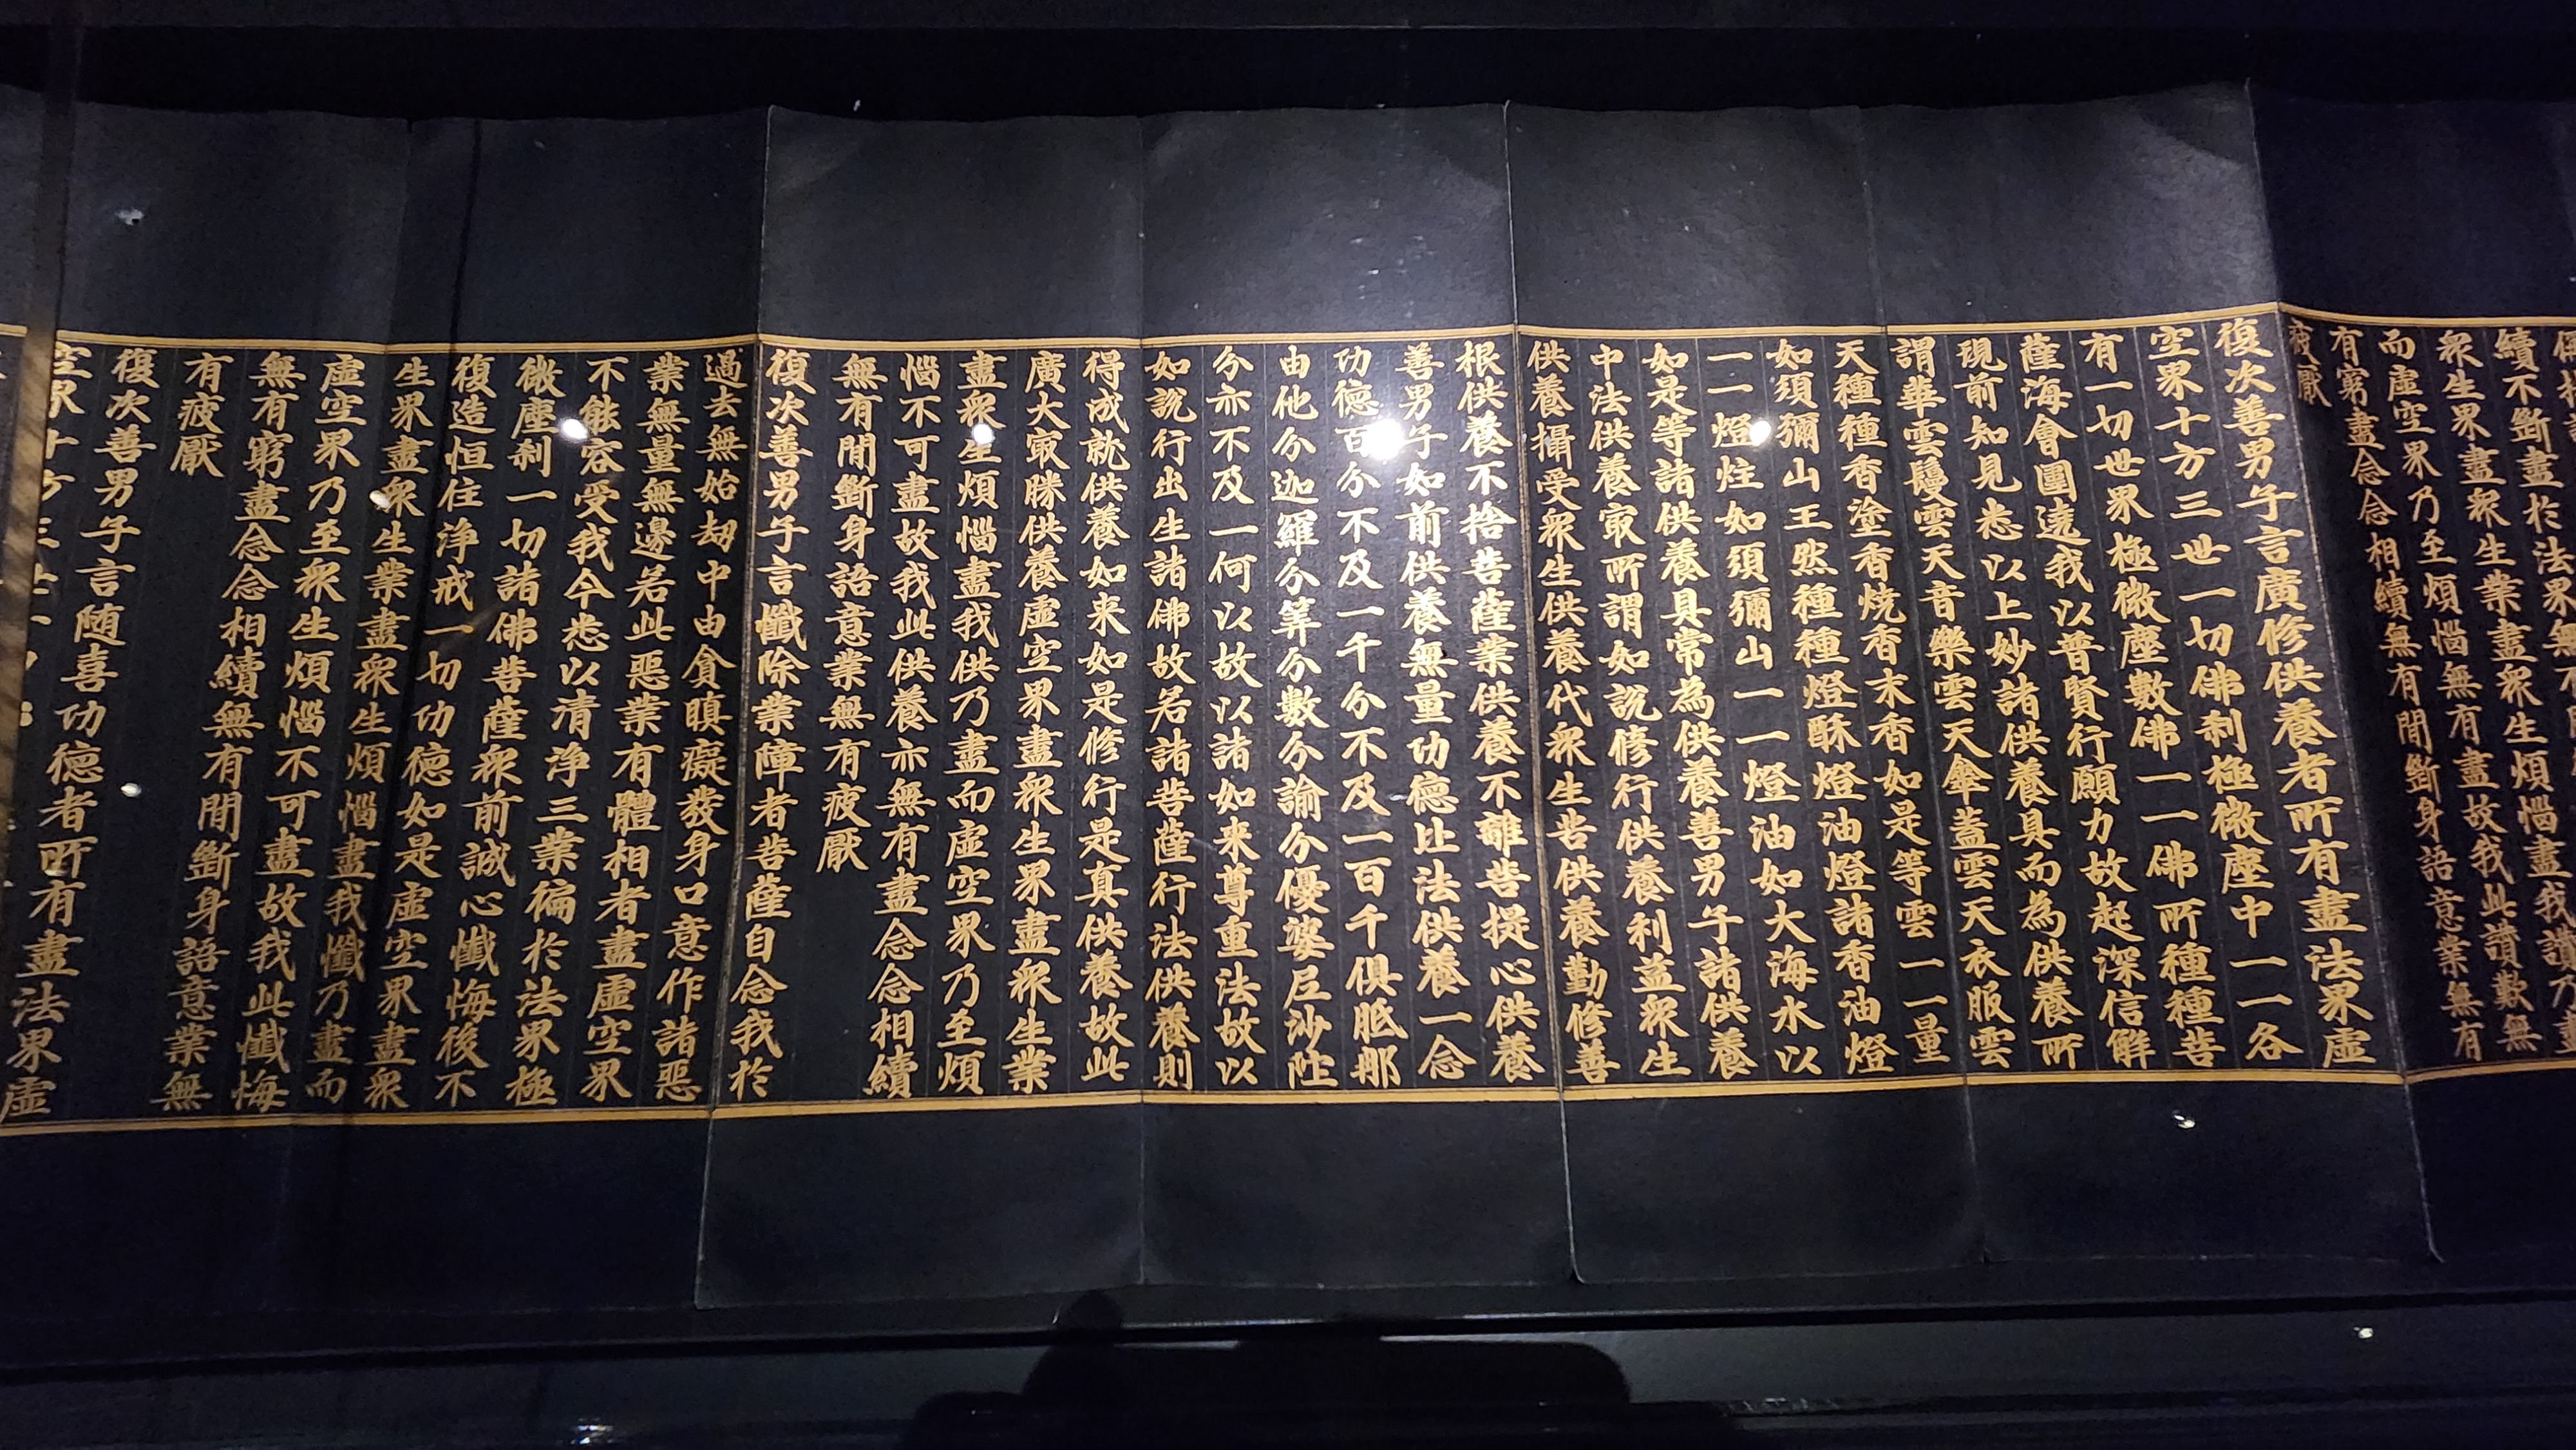 續不斷盡於法界無
衆生界盡衆生業盡衆生煩惱盡我讚乃盡
而虛空界乃至煩惱無有盡故我此讚歎無
有窮盡念念相續無有間斷身語意業無有
疲厭
復次善男子言廣修供養者所有盡法界虛
空界十方三世一切佛刹極微塵中一一各
有一切世界極微塵數佛一一佛所種種菩
薩海會圍遶我以普賢行願力故起深信解
現前知見悉以上妙諸供養具而為供養所
謂華雲鬘雲天音樂雲天傘蓋雲天衣服雲
天種種香塗香燒香末香如是等雲一一量
如須彌山王然種種燈酥燈油燈諸香油燈
一一燈炷如須彌山一一燈油如大海水以
如是等諸供養具常為供養善男子諸供養
中法供養冣所謂如說修行供養利益衆生
供養攝受衆生供養代衆生苦供養勤修善
根供養不捨菩薩業供養不離菩提心供養
善男子如前供養無量功德比法供養一念
功德百分不及一千分不及一百千俱胝那
由他分迦羅分筭分數分諭分優婆尼沙陀
分亦不及一何以故以諸如来尊重法故以
如說行出生諸佛故若諸菩薩行法供養則
得成就供養如来如是修行是真供養故此
廣大冣勝供養虛空界盡衆生界盡衆生業
盡衆生煩惱盡我供乃盡而虛空界乃至煩
惱不可盡故我此供養亦無有盡念念相續
無有間斷身語意業無有疲厭
復次善男子言懺除業障者菩薩自念我於
過去無始劫中由貪瞋癡發身口意作諸惡
業無量無邊若此惡業有體相者盡虛空界
不能容受我今悉以清淨三業徧於法界極
微塵刹一切諸佛菩薩衆前誠心懺悔後不
復造恒住淨戒一切功德如是虛空界盡衆
生界盡衆生業盡衆生煩惱盡我懺乃盡而
虛空界乃至衆生煩惱不可盡故我此懺悔
無有窮盡念念相續無有間斷身語意業無
有疲厭
復次善男子言随喜功德者所有盡法界虛